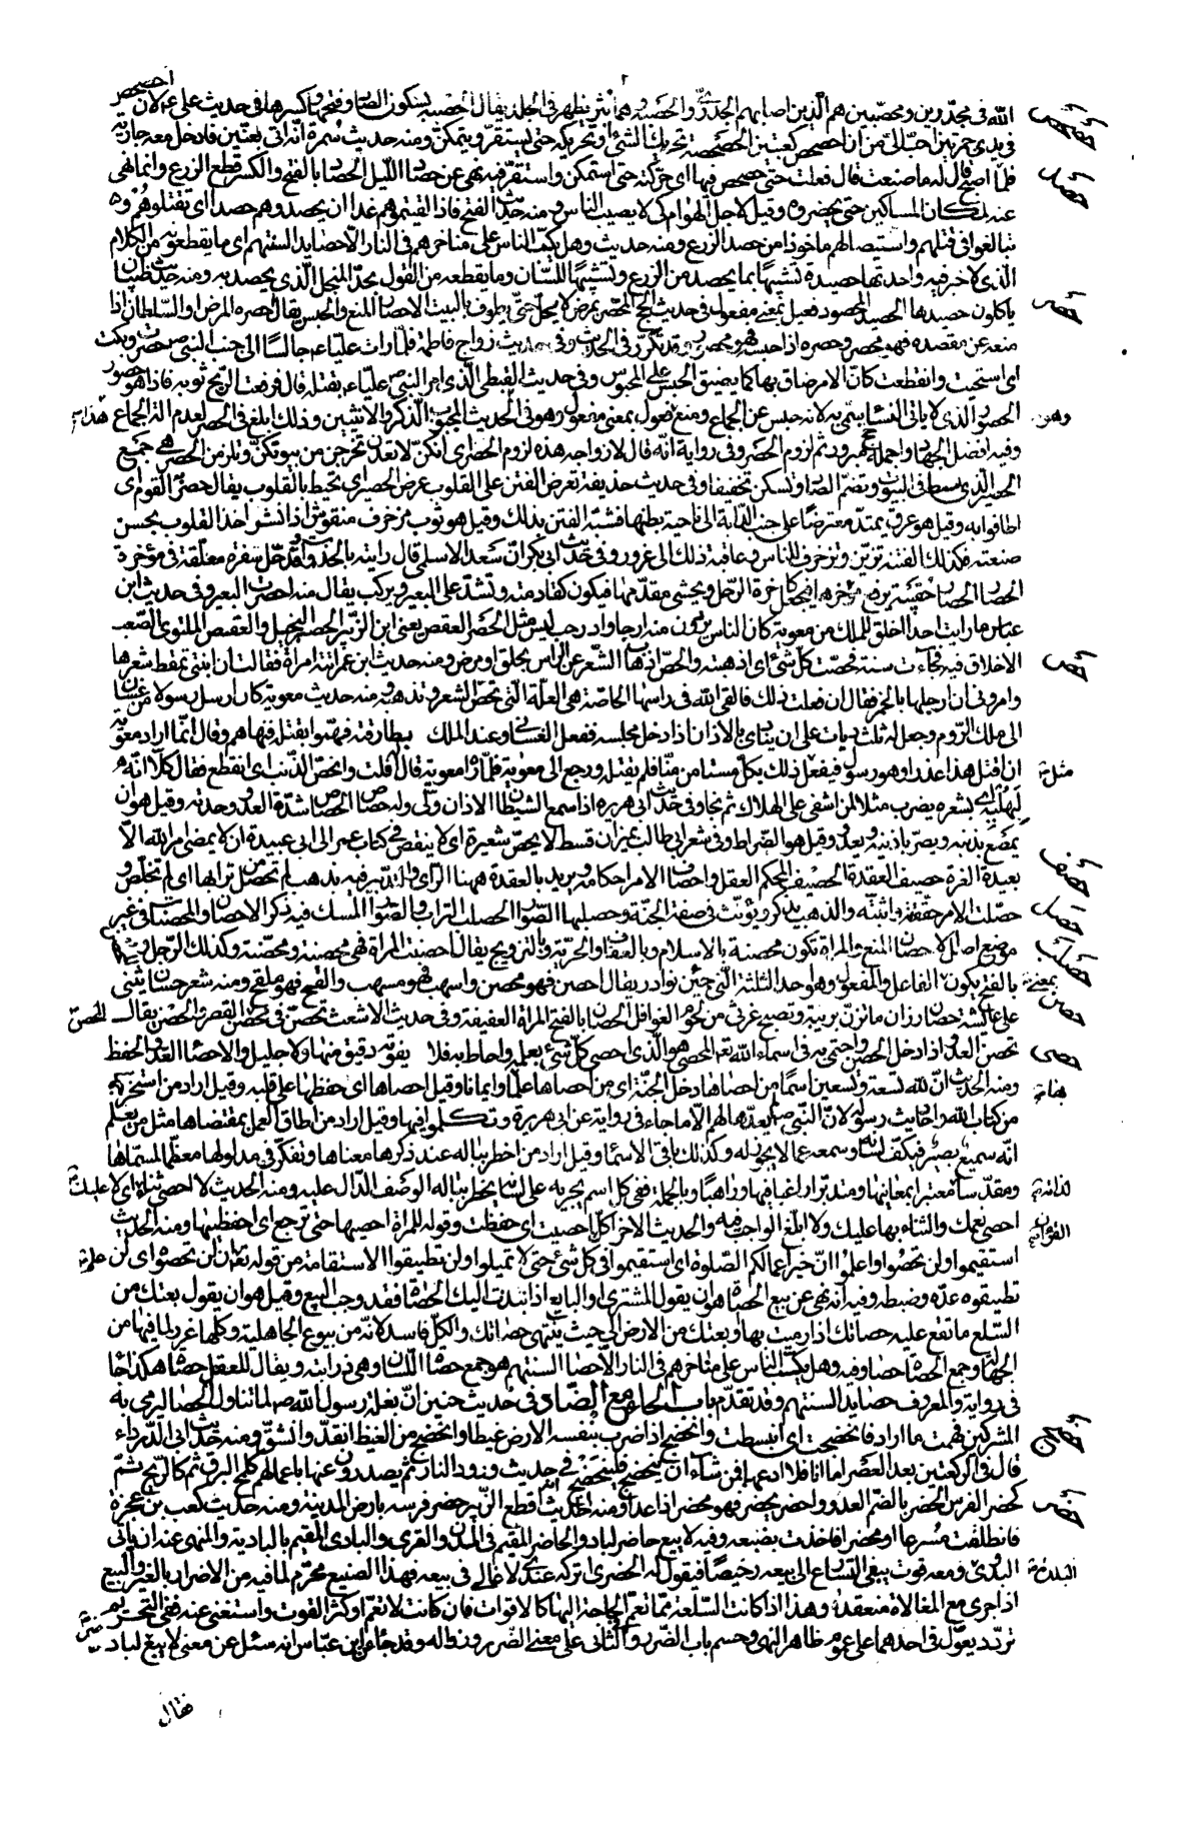 الله فى مجدرين ومحصبين هم الذين اصابهم الجدرى والحصبة وهما بثر يظهر فى الجلد يقال الحصبة بسكون الصاد وفتحها وكسرها فى حديث على ع لان احصحص
فى يدى جمرتين احب الى من ان احصحص كعبتين الحصحصة تحريك الشئ او تحركه حتى يستقر ويتمكن ومنه حديث سمرة انه اتى بعنين فادخل معه جارية
فلما اصبح قال له ما صنعت قال فعلت حتى حصحص فيها اى حركته حتى استمكن واستقر فيه نهى عن حصاد الليل الحصاد بالفتح والكسر قطع الزرع وانما نهى
عنه لمكان المساكين حتى يحضروه وقيل لاجل الهوام كى لا يصيب الناس ومنه حديث الفتح فاذا لقيتموهم غدا ان يحصدوهم حصدا اى تقتلوهم و
تبالغوا فى قتلهم واستيصالهم ماخوذ من حصد الزرع ومنه حديث وهل يكب الناس على مناخرهم فى النار الا حصايد السنتهم اى ما يقطعونه من الكلام
الذى لا خير فيه واحدتها حصيدة تشبيها بما يحصد من الزرع وتشبيها للسان وما يقطعه من القول بحد المنجل الذى يحصد به ومنه حديث ظبيان
ياكلون حصيدها الحصيد المحصود فعيل بمعنى مفعول فى حديث الحج المحصر بمرض لا يحل حتى يطوف بالبيت الاحصار المنع والحبس يقال احصره المرض او السلطان اذا
منعه عن مقصده فهو محصر وحصره اذا حبسه فهو محصور وقد تكرر فى الحديث وفى حديث زواج فاطمة فلما رات عليا ع جالسا الى جنب النبى ص حصرت وبكت
اى استحيت وانقطعت كان الامر ضاق بها كما يضيق الحبس على المحبوس وفى حديث القبطى الذى امر النبى ص عليا ع بقتله قال فرفعت الريح ثوبه فاذا هو حصور
الحصور الذى لا ياتى النساء سمى به لانه حبس عن الجماع ومنع فعول بمعنى مفعول وهو فى الحديث المجبوب الذكر والانثيين وذلك ابلغ فى الحصر لعدم الة الجماع
وفيه افضل الجهاد واجمله حج مبرور ثم لزوم الحصر وفى رواية انه قال لازواجه هذه ثم لزوم الحصر اى انكن لا تعدن تخرجن من بيوتكن وتلزمن الحصر هى جمع
الحصير الذى يبسط فى البيوت وتضم الصاد وتسكن تخفيفا وفى حديث حذيفة تعرض الفتن على القلوب عرض الحصير اى تحيط بالقلوب يقال حصر به القوم اى
اطافوا به وقيل هو عرق يمتد معترضا على جنب الدابة الى ناحية بطنها فشبه الفتن بذلك وقيل هو ثوب مزخرف منقوش اذا نشر اخذ القلوب بحسن
صنعته فكذلك الفتنة تزين وتزخرف للناس وعاقبة ذلك الى غرور وفى حديث ابى بكر ان سعد الاسلمى قال رايته بالخذوات وقد حل سفرة معلقة فى مؤخرة
الحصار الحصار حقيبة يرفع مؤخرها فيجعل كاخرة الرحل ويحشى مقدمها فيكون كقادمته وتشد على البعير ويركب يقال منه احصرت البعير وفى حديث ابن
عباس ما رايت احدا اخلق للملك من معوية كان الناس يردون منه ارجاء واد رحب ليس مثل الحصر العقص يعنى ابن الزبير الحصر البخيل والعقص الملتوى الصعب
الاخلاق فيه فجاءت سنة فحصت كل شئ اى اذهبته والحص اذهاب الشعر عن الراس بحلق او مرض ومنه حديث ابن عمر اتته امراة فقالت ان ابنتى تمعط شعرها
وامرونى ان ارجلها بالخمر فقال ان فعلت ذلك فالقى الله فى راسها الحاصة هى العلة التى تحص الشعر وتذهبه ومنه حديث معوية كان ارسل رسولا من غسان
الى ملك الروم وجعل له ثلث ديات على ان ينادى بالاذان اذا دخل مجلسه ففعل الغسانى وعند الملك بطارقته فهموا بقتله فنهاهم وقال انما اراد معوية
ان اقتل هذا غدرا وهو رسول فيفعل ذلك بكل مستامن منا فلم يقتله ورجع الى معوية فلما راه معوية قال افلت وانحص الذنب اى انقطع فقال كلا انه
لبهلبه اى بشعره يضرب مثلا لمن اشفى على الهلاك ثم نجا وفى حديث ابى هريرة اذا سمع الشيطان الاذان ولى وله حصاص الحصاص شدة العدو وحدته وقيل هو ان
يمصع بذنبه ويصر باذنيه ويعدو وقيل هو الضراط وفى شعر ابى طالب بميزان قسط لا يحص شعيرة اى لا ينقص فى كتاب عمر الى ابى عبيدة ان لا يمضى امر الله الا
بعيد الغرة حصيف العقدة الحصيف المحكم العقل واحصاف الامر احكامه ويريد بالعقدة ههنا الراى والتدبير فيه بذهب لم تحصل من ترابها اى لم تخلص و
حصلت الامر حققته واثبته والذهب يذكر ويؤنث فى صفة الجنة وحصلبها الصوار الحصلب التراب والصوار المسك فيه ذكر الاحصان والمحصنات فى غير
موضع اصل الاحصان المنع والمراة تكون محصنة بالاسلام وبالعفاف والحرية وبالتزويج يقال احصنت المراة فهى محصنة ومحصنة وكذلك الرجل
بالفتح يكون بمعنى الفاعل والمفعول وهو احد الثلثة التى جئن نوادر يقال احصن فهو محصن واسهب فهو مسهب والفج فهو ملفج ومنه شعر حسان يثنى
على عايشة حصان رزان ما تزن بريبة وتصبح غرثى من لحوم الغوافل الحصان بالفتح المراة العفيفة وفى حديث الاشعث تحصن فى محصن القصر والحصن يقال
تحصن العدو اذا دخل الحصن واحتمى به فى اسماء الله تع المحصى هو الذى احصى كل شئ بعلمه واحاط به فلا يفوته دقيق منها ولا جليل والاحصاء العد والحفظ
ومنه الحديث ان لله تسعة وتسعين اسما من احصاها دخل الجنة اى من احصاها علما وايمانا وقيل احصاها اى حفظها على قلبه وقيل اراد من استخرجها
من كتاب الله واحاديث رسوله لان النبى ص لم يعدها لهم الا ما جاء فى رواية عن ابى هريرة وتكلموا فيها وقيل اراد من اطاق العمل بمقتضاها مثل من يعلم
انه سميع بصير فيكف لسانه وسمعه عما لا يجوز له وكذلك باقى الاسماء وقيل اراد من اخطر بباله عند ذكرها معناها وتفكر فى مدلولها معظما لمسماها
ومقدسا معتبرا بمعانيها ومتدبرا راغبا فيها وراهبا وبالجملة ففى كل اسم يجريه على لسانه يخطر بباله الوصف الدال عليه ومنه الحديث لا احصى ثناء عليك اى لا
احصى نعمك والثناء بها عليك ولا ابلغ الواجب فيه والحديث الاخر اكل القران احصيت اى حفظت وقوله للمراة احصيها حتى نرجع اى احفظيها ومنه الحديث
استقيموا ولن تحصوا واعلموا ان خير اعمالكم الصلوة اى استقيموا فى كل شئ حتى لا تميلوا ولن تطيقوا الاستقامة من قوله تع علم ان لن تحصوه اى لن
تطيقوه عده وضبطه وفيه انه نهى عن بيع الحصاة هو ان يقول المشترى او البايع اذا نبذت اليك الحصاة فقد وجب البيع وقيل هو ان يقول بعتك من
السلع ما تقع عليه حصاتك اذا رميت بها او بعتك من الارض الى حيث تنتهى حصاتك والكل فاسد لانه من بيوع الجاهلية وكلها غرر لما فيها من
الجهالة وجمع الحصاة حصا وفيه وهل يكب الناس على مناخرهم فى النار الا حصا السنتهم هو جمع حصاة اللسان وهى ذرابته ويقال للعقل حصاة هكذا جاء
فى رواية والمعروف حصايد السنتهم وقد تقدم باب الحاء مع الضاد فى حديث حنين ان بغلة رسول الله ص لما تناول الحصا ليرمى به
المشركين فهمت ما اراد فانحضجت اى انبسطت وانحضج اذا ضرب بنفسه الارض غيظا وانحضج من الغيظ انقد وانشق ومنه حديث ابى الدرداء
قال فى الركعتين بعد العصر اما انا فلا ادعها فمن شاء ان ينحضج فلينحضج فى حديث ورود النار ثم يصدرون عنها باعمالهم كلمح البرق ثم كالريح ثم
كحضر الفرس الحضر بالضم العدو واحضر يحضر فهو محضر اذا عدا ومنه الحديث انه اقطع الزبير حضر فرسه بارض المدينة ومنه حديث كعب بن عجرة
فانطلقت مسرعا او محضرا فاخذت بضبعه وفيه لا يبيع حاضر لباد الحاضر المقيم فى المدن والقرى والبادى المقيم بالبادية والمنهى عنه ان ياتى
البدوى البلدة ومعه قوت يبغى التسارع الى بيعه رخيصا فيقول له الحضرى اتركه عندى لاغالى فى بيعه فهذا الصنيع محرم لما فيه من الاضرار بالغير والبيع
اذا جرى مع المغالاة منعقد وهذا اذا كانت السلعة مما تعم الحاجة اليها كالاقوات فان كانت لا تعم او كثر القوت واستغنى عنه ففى التحريم
تردد يعول فى احدهما على عموم ظاهر النهى وحسم باب الضرر والثانى على معنى الضرر وزواله وقد جاء عن ابن عباس انه سئل عن معنى لا يبيع لباد
فقال